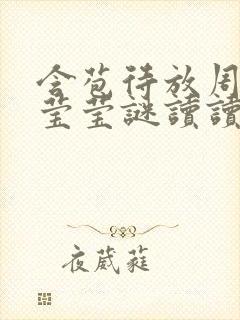 含苞待放周
莹莹謎讀讀
夜葳蕤